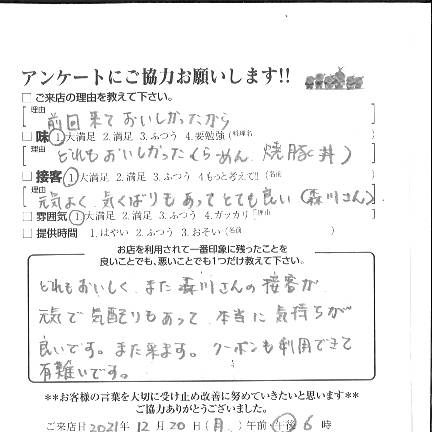 アンケートにご協力お願いします!!
□ ご来店の理由を教えて下さい。
理由
前回来ておいしかったから
□ 味 1.大満足 2.満足 3.ふつう 4.要勉強 (料理名
理由
どれもおいしかった (らーめん、焼豚丼)
□ 接客 1.大満足 2.満足 3.ふつう 4.もっと考えて!! (名前
理由
元気よく気くばりもあってとても良い (森川さん)
□ 雰囲気 1.大満足 2.満足 3.ふつう 4.ガッカリ (理由
□ 提供時間 1.はやい 2.ふつう 3.おそい (名前 )
お店を利用されて一番印象に残ったことを
良いことでも、悪いことでも1つだけ教えて下さい。
どれもおいしく、また森川さんの接客が
元気で気配りもあって、本当に気持ちが
良いです。また来ます。クーポンも利用できて
有難いです。
**お客様の言葉を大切に受け止め改善に努めていきたいと思います**
ご協力ありがとうございました。
ご来店日 2021年 12月 20日 (月) 午前 午後 6時